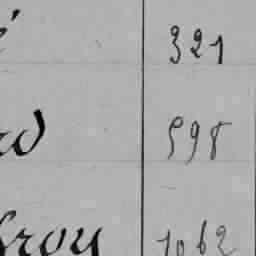 é 321
rd 598
froy 1062